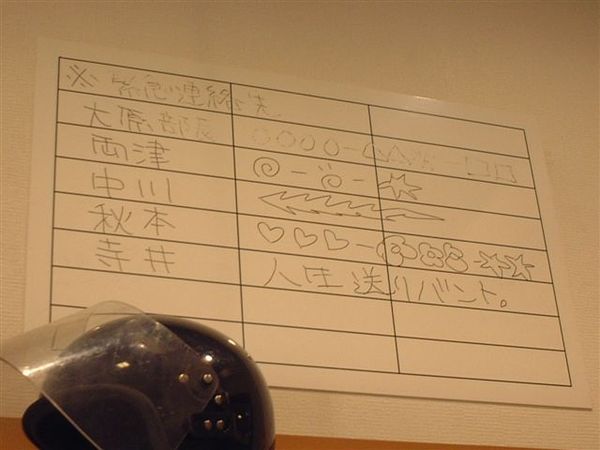 ※緊急連絡先
大原部長 ○○○○-○△☆-□□□
両津
中川
秋本 ♡♡♡-
寺井 人生送りバント。